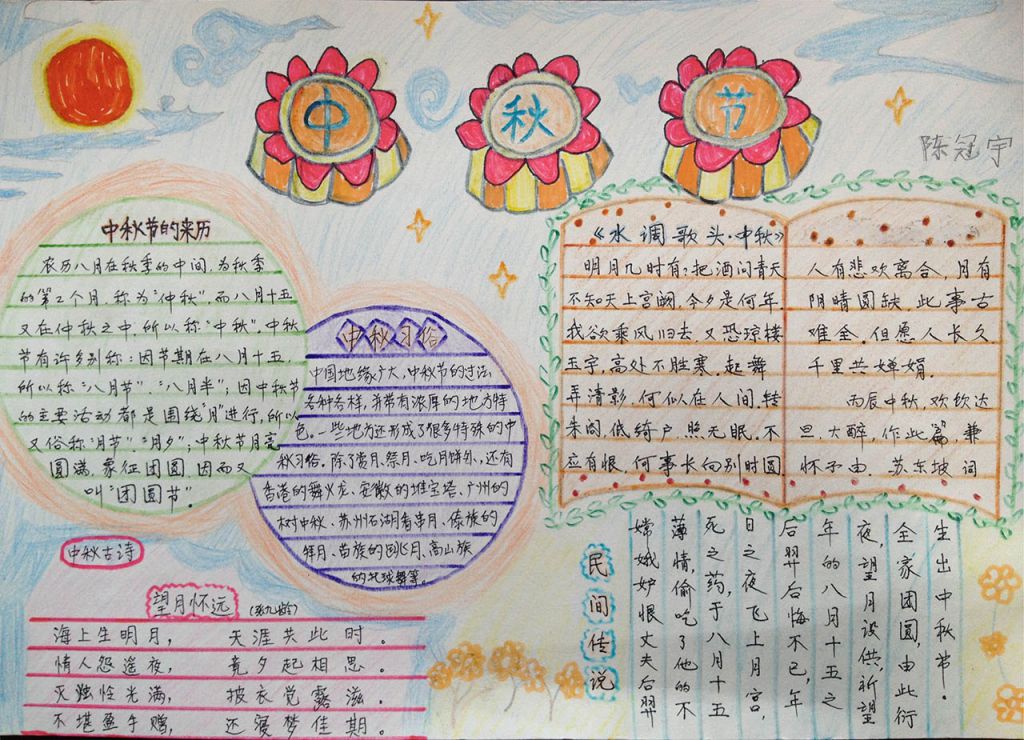 中秋节
陈冠宇
中秋节的来历
农历八月在秋季的中间,为秋季
的第2个月,称为"仲秋",而八月十五
又在仲秋之中,所以称"中秋"。中秋
节有许多别称:因节期在八月十五,
所以称"八月节"、"八月半";因中秋节
的主要活动都是围绕"月"进行,所以
又俗称"月节"、"月夕";中秋节月亮
圆满,象征团圆,因而又
叫"团圆节"。
中秋习俗
中国地缘广大,中秋节的过法
各种各样,并带有浓厚的地方特
色。一些地方还形成了很多特殊的中
秋习俗。除了赏月、祭月、吃月饼外,还有
香港的舞火龙、安徽的堆宝塔、广州的
树中秋、苏州石湖看串月、傣族的
拜月、苗族的跳月、高山族
的托球舞等。
《水调歌头·中秋》
明月几时有,把酒问青天
不知天上宫阙,今夕是何年
我欲乘风归去,又恐琼楼
玉宇,高处不胜寒,起舞
弄清影,何似在人间,转
朱阁,低绮户,照无眠,不
应有恨,何事长向别时圆
人有悲欢离合,月有
阴晴圆缺,此事古
难全,但愿人长久
千里共婵娟。
丙辰中秋,欢饮达
旦,大醉,作此篇,兼
怀子由. 苏东坡 词
中秋古诗
望月怀远 (张九龄)
海上生明月, 天涯共此时。
情人怨遥夜, 竟夕起相思。
灭烛怜光满, 披衣觉露滋。
不堪盈手赠, 还寝梦佳期。
民间传说
嫦娥妒恨丈夫后羿
薄情,偷吃了他的不
死之药,于八月十五
日之夜飞上月宫,
后羿后悔不已,年
年的八月十五之
夜,望月设供,祈望
全家团圆,由此衍
生出中秋节。